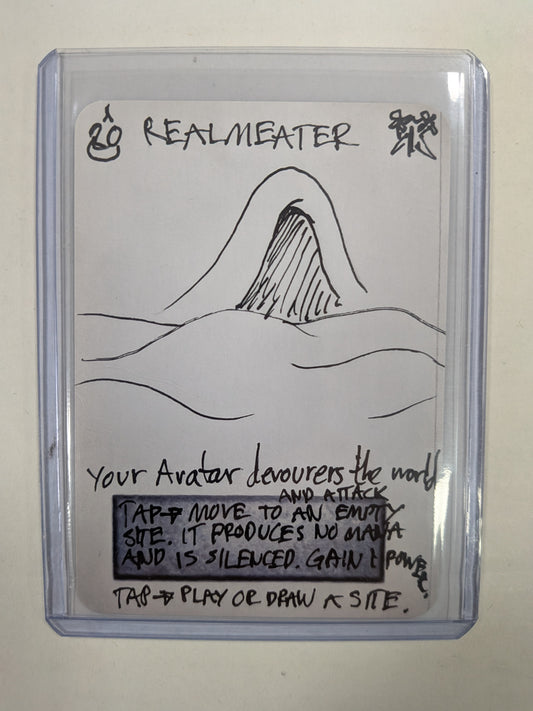 20 REALMEATER
Your Avatar devourers the world
AND ATTACK
TAP → MOVE TO AN EMPTY
SITE. IT PRODUCES NO MANA
AND IS SILENCED. GAIN 1 POWER.
TAP → PLAY OR DRAW A SITE.